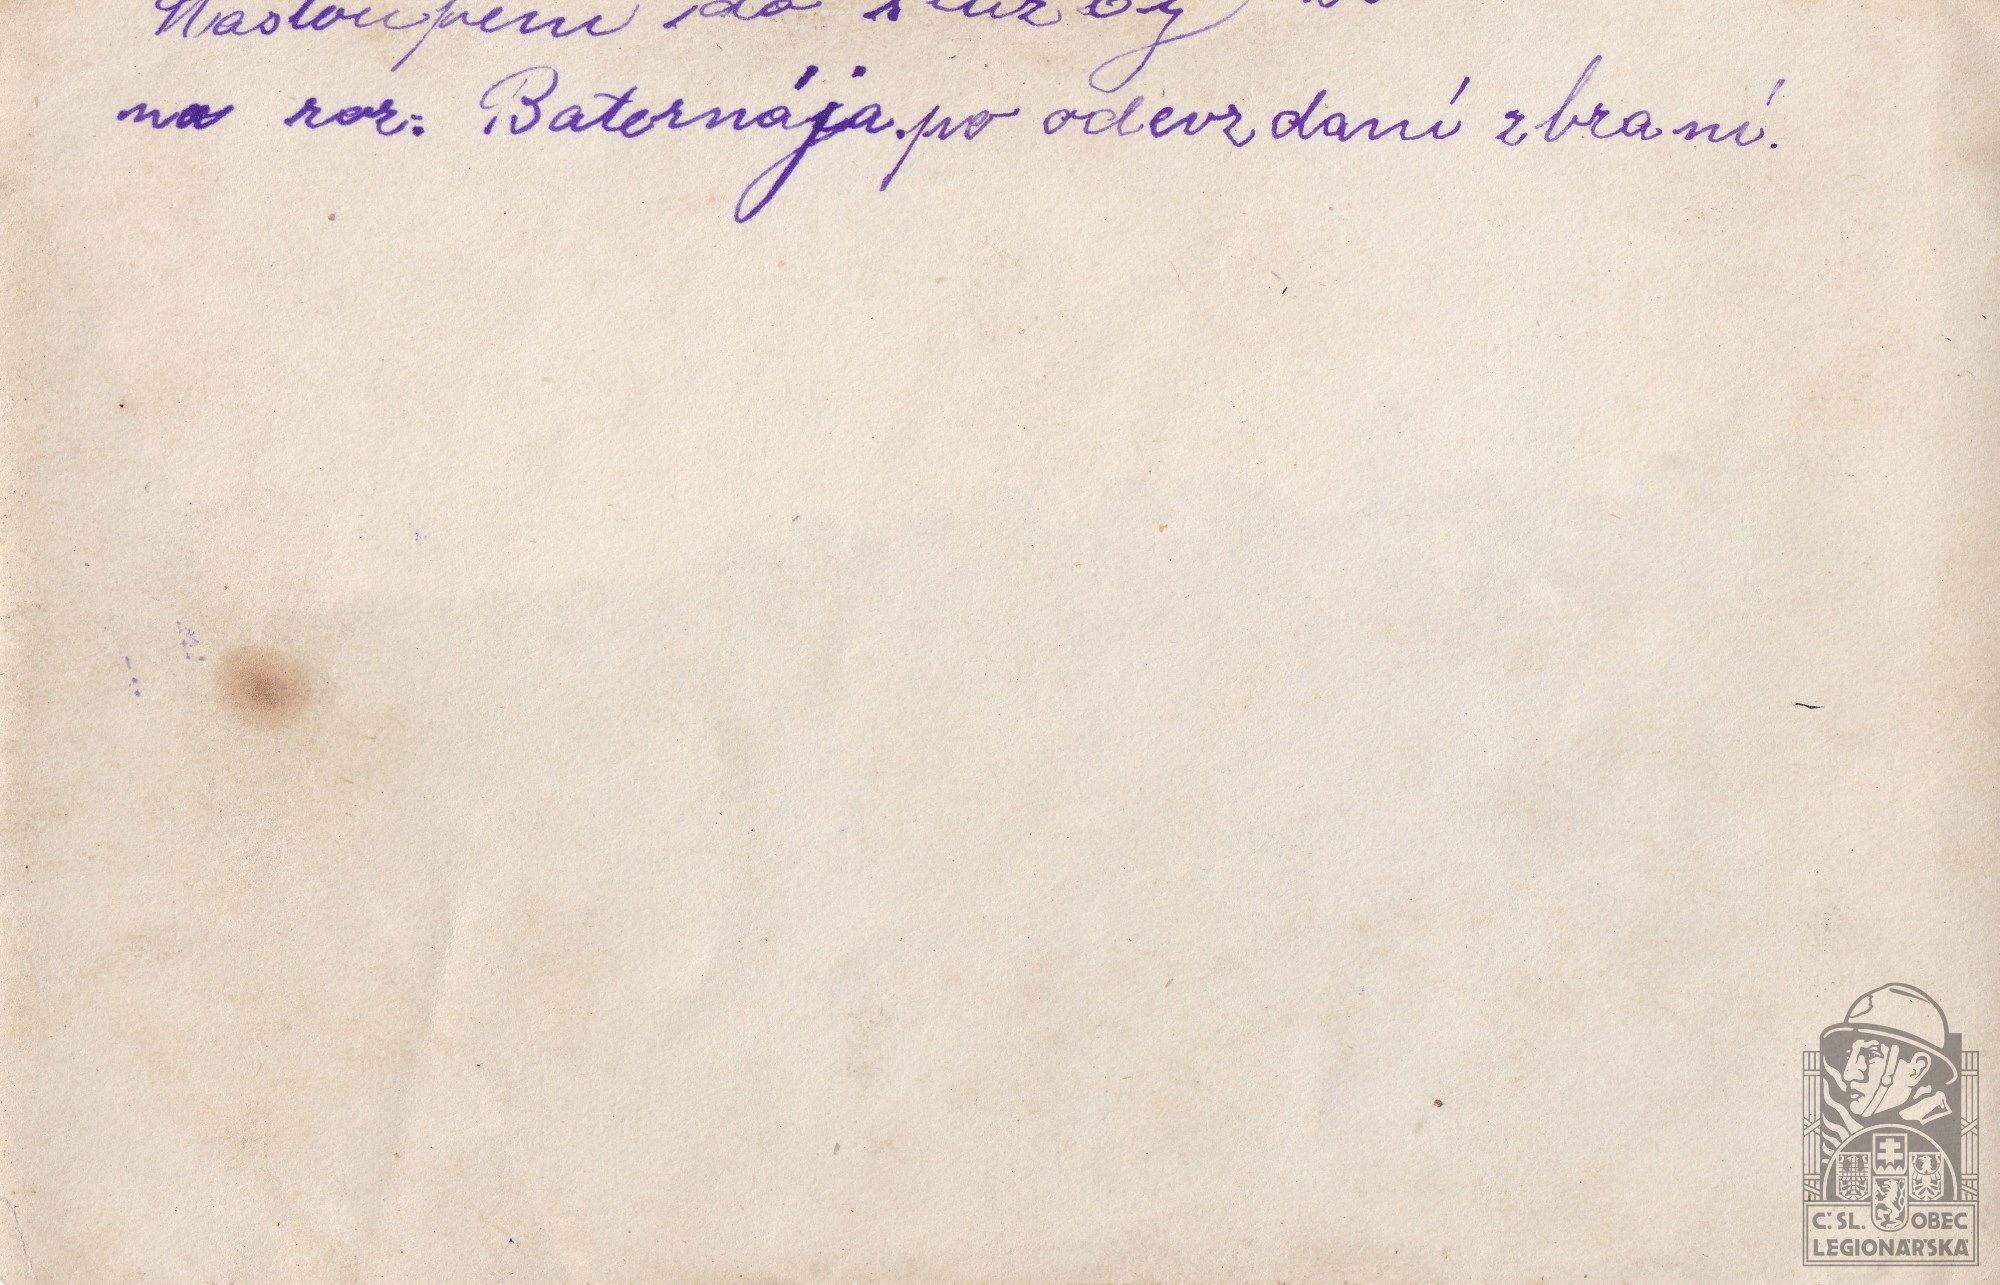 Nastoupení do služby
na roz: Baternája po odevzdaní zbraní.
C.SL. OBEC
LEGIONÁŘSKÁ